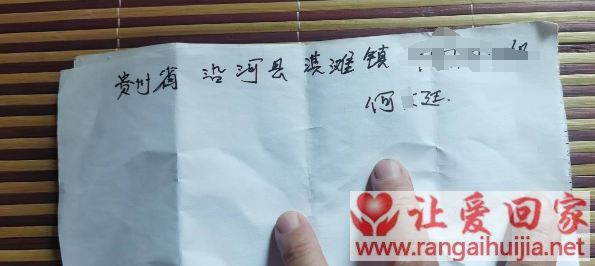 贵州省 沿河县 淇滩镇
何 廷.
让爱回家
www.rangaihuijia.net